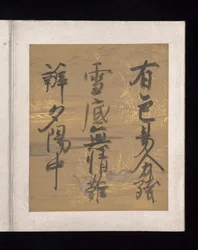 有色易分殘
雪底無情難
辨夕陽中